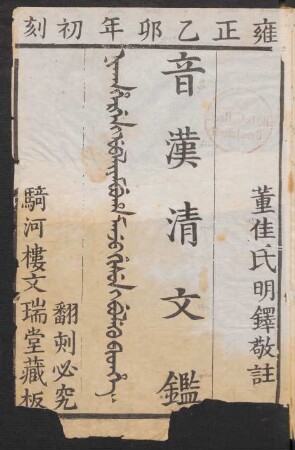 雍正乙卯年初刻
董佳氏明鐸敬註
音漢清文鑑
翻刻必究
騎河樓文瑞堂藏板